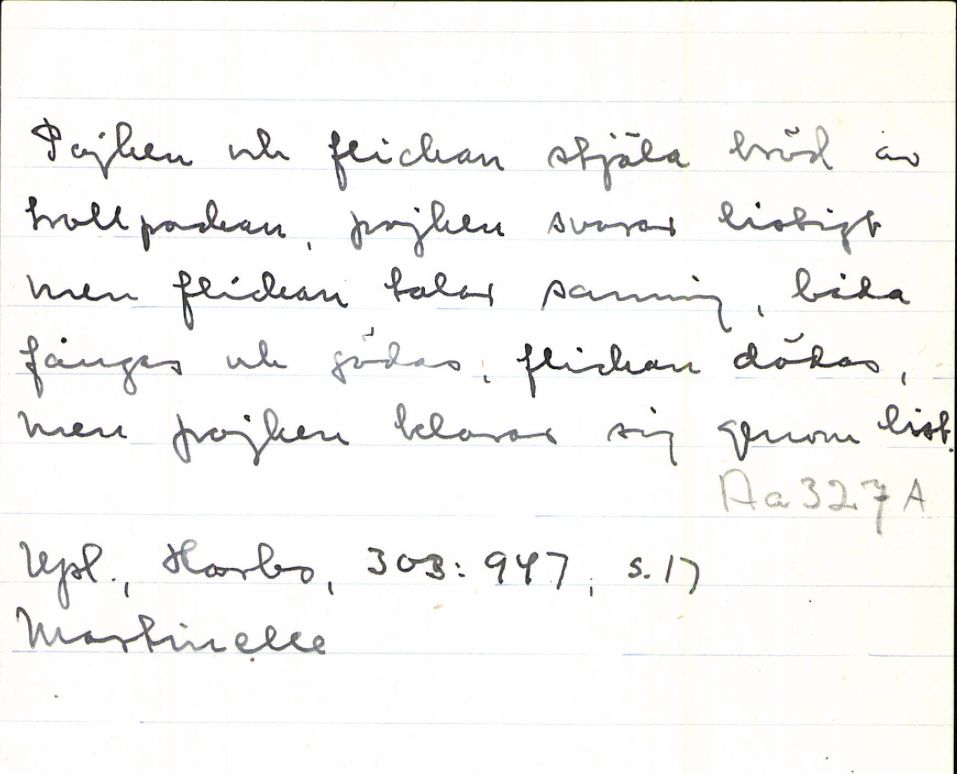 Pojken och flickan stjäla bröd av
trollpackan, pojken svarar listigt
men flickan talar sanning, båda
fångas och gödas, flickan dödas,
men pojken klarar sig genom list.
Aa 327 A
Upl., Harbo, 303:947, s.17
Martinelle